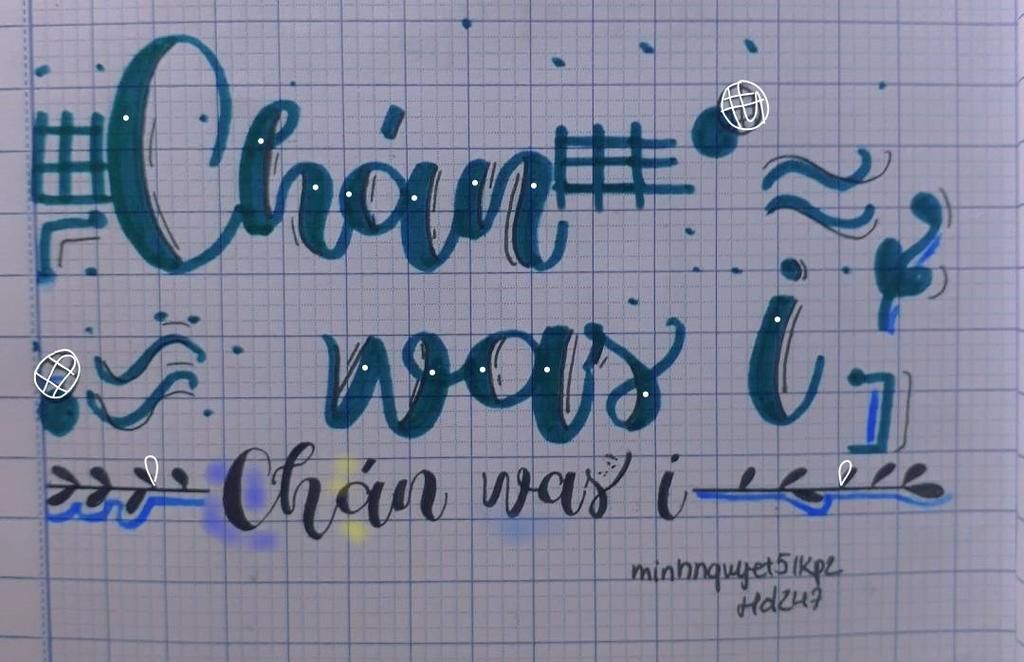 Chán
was i
Chán was i
minhnguyet51kp2
Hd247